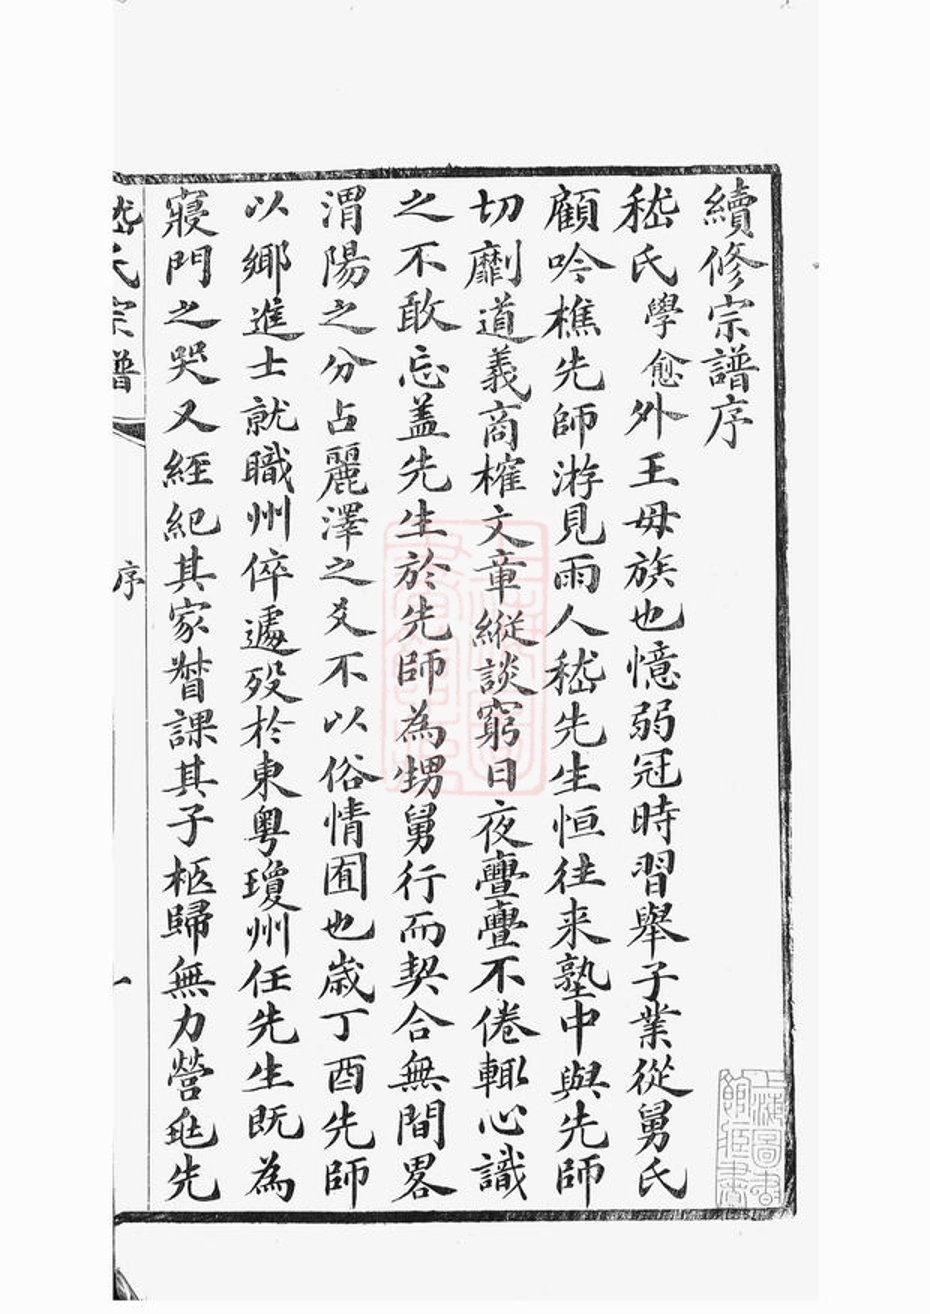 續修宗譜序
嵇氏學愈外王母族也憶弱冠時習舉子業從舅氏
顧吟樵先師游見雨人嵇先生恒往来塾中與先師
切劘道義商榷文章縱談窮日夜亹亹不倦輒心識
之不敢忘盖先生於先師為甥舅行而契合無間畧
渭陽之分占麗澤之爻不以俗情囿也歲丁酉先師
以鄉進士就職州倅遽歿於東粵瓊州任先生既為
寢門之哭又經紀其家督課其子柩歸無力營𦵏先
嵇氏宗譜
序
一
上海圖書館藏書